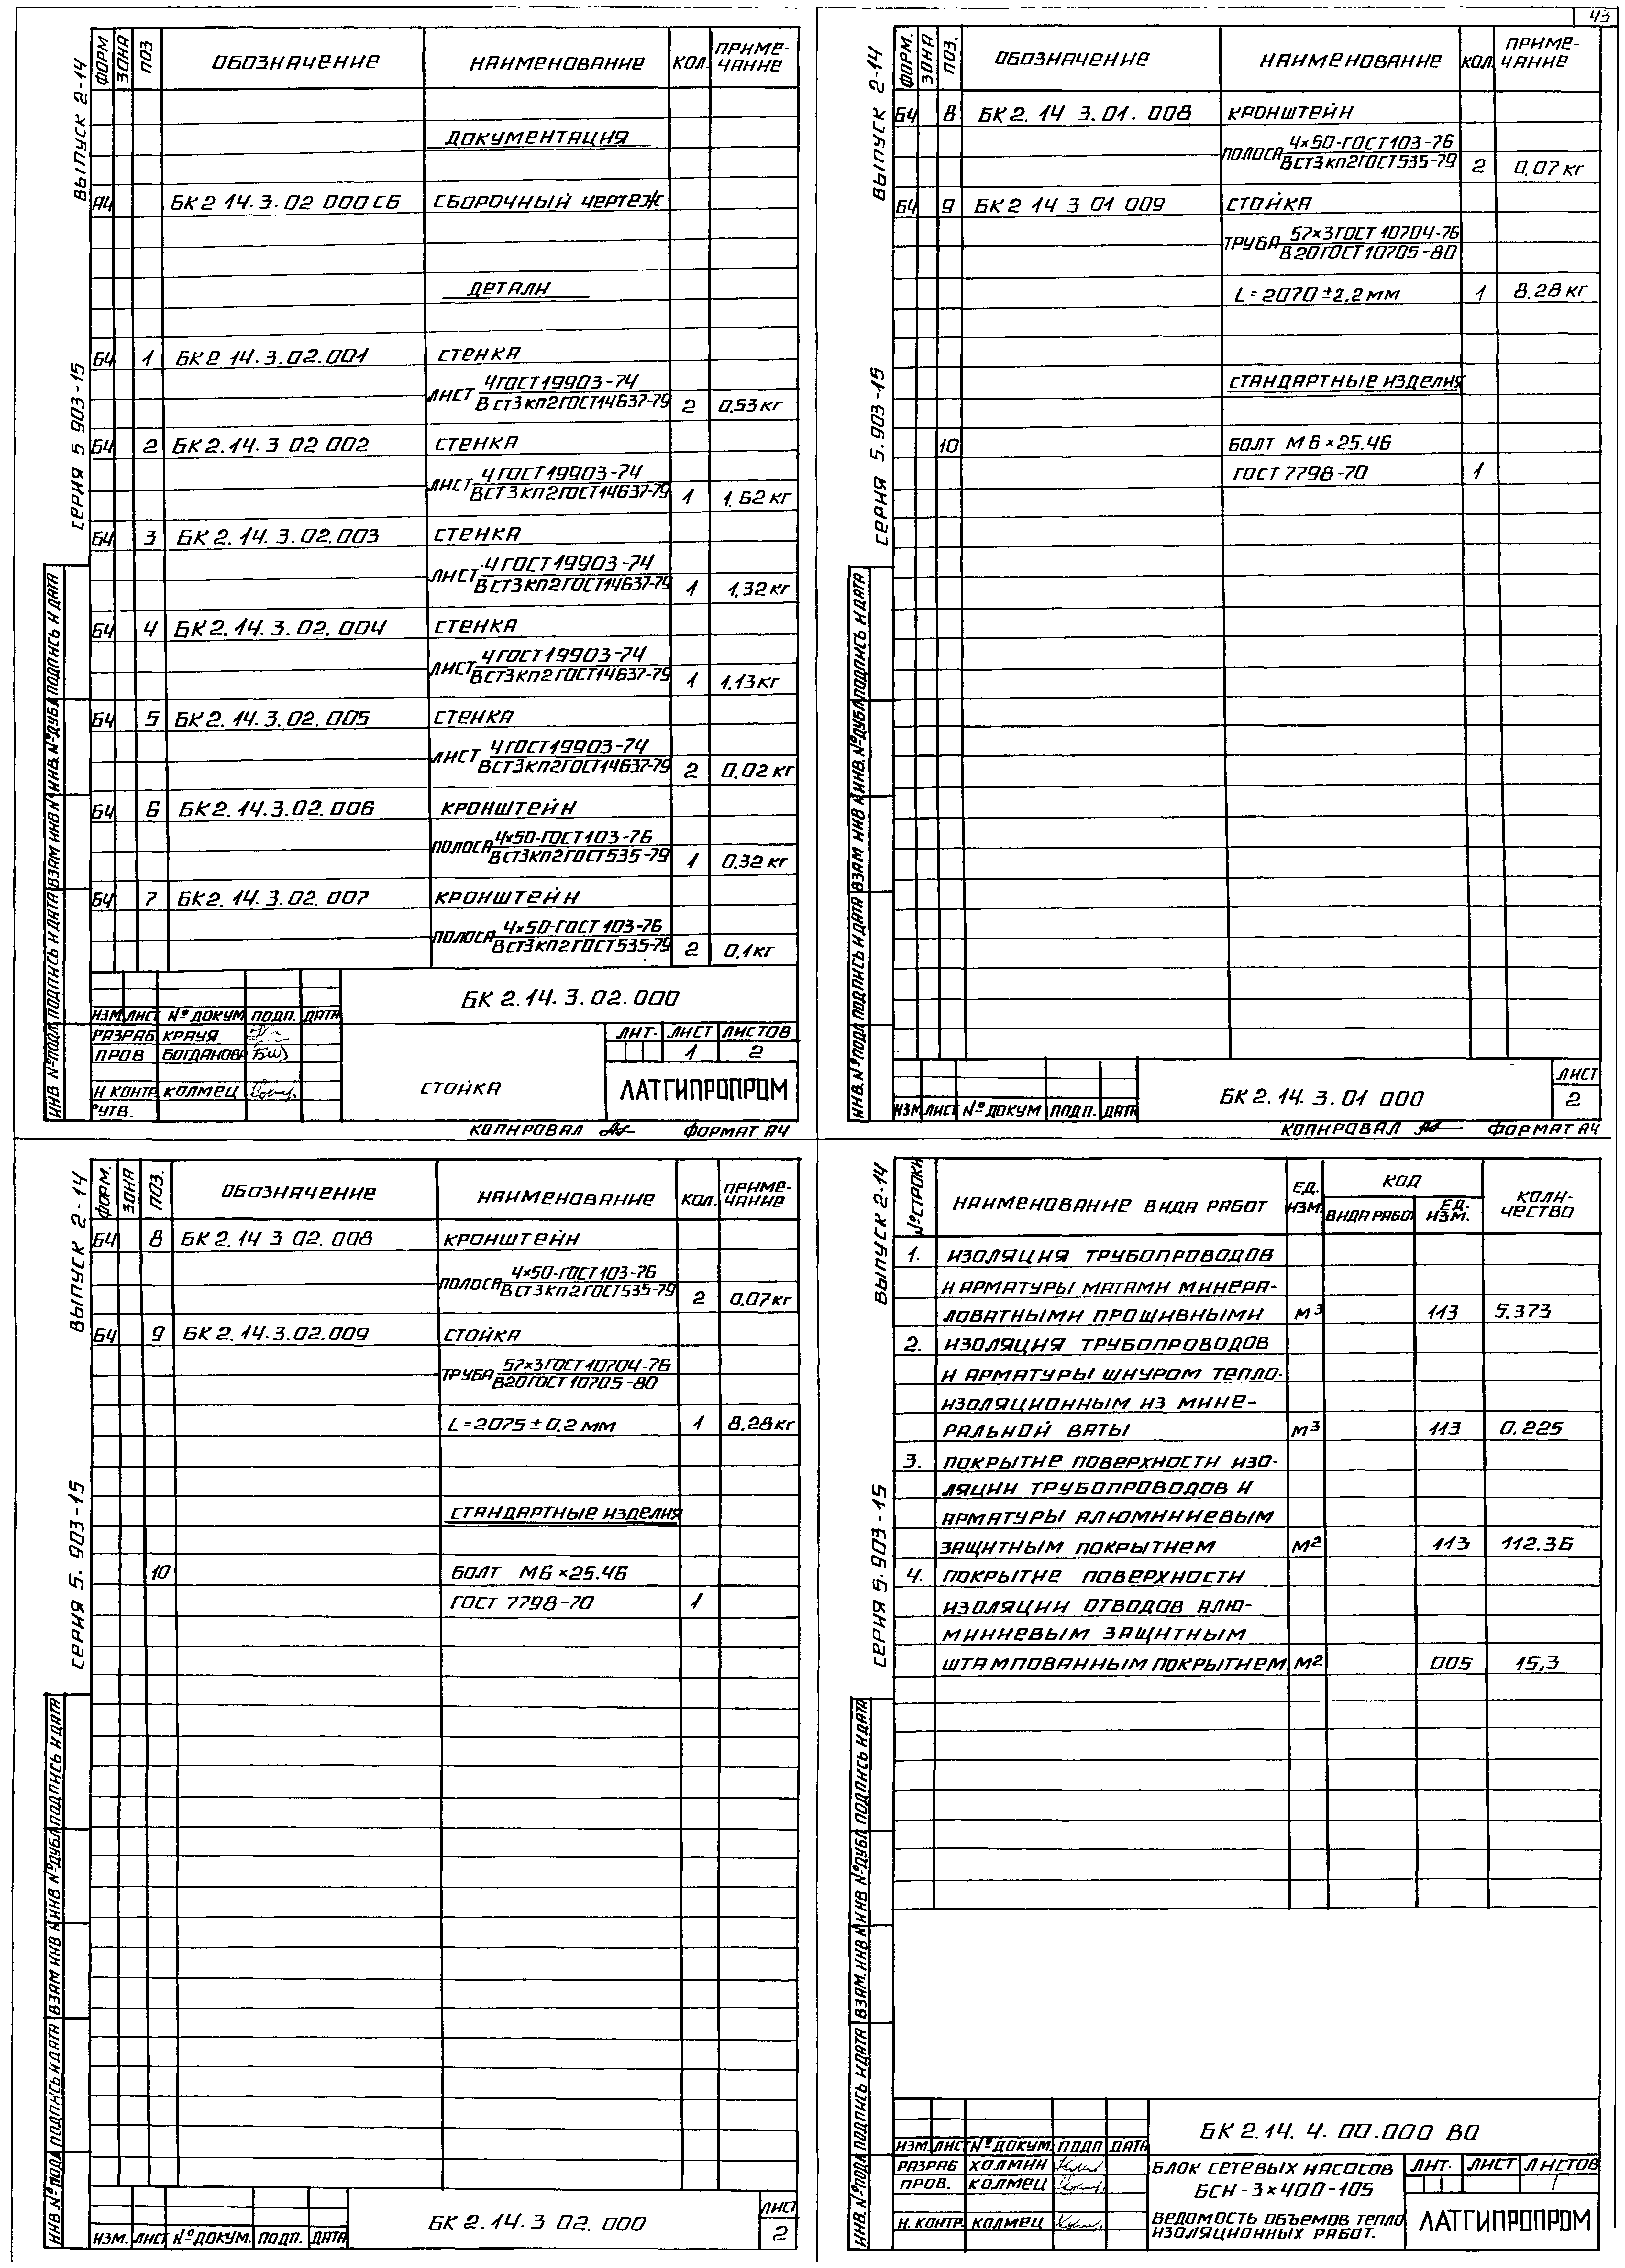 43
ВЫПУСК 2-14
СЕРИЯ 5 903-15
ФОРМ ЗОНА ПОЗ ОБОЗНАЧЕНИЕ НАИМЕНОВАНИЕ КОЛ. ПРИМЕ-
ЧАНИЕ
ДОКУМЕНТАЦИЯ
А4 БК 2 14.3.02 000 СБ СБОРОЧНЫЙ ЧЕРТЕЖ
ДЕТАЛИ
БЧ 1 БК 2 14.3.02.001 СТЕНКА
ЛИСТ 4 ГОСТ 19903-74
В СТ3 КП2 ГОСТ 14637-79 2 0.53 кг
БЧ 2 БК 2.14.3 02 002 СТЕНКА
ЛИСТ 4 ГОСТ 19903-74
ВСТ3 КП2 ГОСТ 14637-79 1 1.62 кг
БЧ 3 БК 2.14.3.02.003 СТЕНКА
ЛИСТ 4 ГОСТ 19903-74
ВСТ3 КП2 ГОСТ 14637-79 1 1,32 кг
БЧ 4 БК 2.14.3.02.004 СТЕНКА
ЛИСТ 4 ГОСТ 19903-74
ВСТ3 КП2 ГОСТ 14637-79 1 1,13 кг
БЧ 5 БК 2.14.3.02.005 СТЕНКА
ЛИСТ 4 ГОСТ 19903-74
ВСТ3 КП2 ГОСТ 14637-79 2 0.02 кг
БЧ 6 БК 2.14.3.02.006 КРОНШТЕЙН
ПОЛОСА 4×50-ГОСТ 103-76
ВСТ3КП2 ГОСТ 535-79 1 0.32 кг
БЧ 7 БК 2.14.3.02.007 КРОНШТЕЙН
ПОЛОСА 4×50-ГОСТ 103-76
ВСТ3КП2 ГОСТ 535-79 2 0.1 кг
ИНВ № ПОДЛ. ПОДПИСЬ И ДАТА ВЗАМ ИНВ № ИНВ. № ДУБЛ ПОДПИСЬ И ДАТА
БК 2.14.3.02.000
ИЗМ ЛИСТ № ДОКУМ ПОДП. ДАТА
РАЗРАБ. КРАУЯ
ПРОВ БОГДАНОВА
Н КОНТР КОЛМЕЦ
УТВ.
СТОЙКА
ЛИТ. ЛИСТ ЛИСТОВ
1 2
ЛАТГИПРОПРОМ
КОПИРОВАЛ ФОРМАТ А4
ВЫПУСК 2-14
СЕРИЯ 5.903-15
ФОРМ. ЗОНА ПОЗ. ОБОЗНАЧЕНИЕ НАИМЕНОВАНИЕ КОЛ. ПРИМЕ-
ЧАНИЕ
БЧ 8 БК 2. 14 3.01. 008 КРОНШТЕЙН
ПОЛОСА 4×50-ГОСТ 103-76
ВСТ3КП2 ГОСТ 535-79 2 0,07 кг
БЧ 9 БК 2 14 3 01 009 СТОЙКА
ТРУБА 57×3 ГОСТ 10704-76
В20 ГОСТ 10705-80
L=2070 ±2.2 мм 1 8.28 кг
СТАНДАРТНЫЕ ИЗДЕЛИЯ
10 БОЛТ М6×25.46
ГОСТ 7798-70 1
ИНВ. № ПОДЛ ПОДПИСЬ И ДАТА ВЗАМ ИНВ № ИНВ. № ДУБЛ ПОДПИСЬ И ДАТА
ИЗМ ЛИСТ № ДОКУМ ПОДП. ДАТА
БК 2.14.3.01 000
ЛИСТ
2
КОПИРОВАЛ ФОРМАТ А4
ВЫПУСК 2-14
СЕРИЯ 5. 903-15
ФОРМ. ЗОНА ПОЗ. ОБОЗНАЧЕНИЕ НАИМЕНОВАНИЕ КОЛ. ПРИМЕ-
ЧАНИЕ
БЧ 8 БК 2.14 3 02.008 КРОНШТЕЙН
ПОЛОСА 4×50-ГОСТ 103-76
ВСТ3КП2 ГОСТ 535-79 2 0,07 кг
БЧ 9 БК 2.14.3.02.009 СТОЙКА
ТРУБА 57×3 ГОСТ 10704-76
В20 ГОСТ 10705-80
L=2075 ± 0.2 мм 1 8.28 кг
СТАНДАРТНЫЕ ИЗДЕЛИЯ
10 БОЛТ М6×25.46
ГОСТ 7798-70 1
ИНВ. № ПОДЛ ПОДПИСЬ И ДАТА ВЗАМ ИНВ № ИНВ № ДУБЛ ПОДПИСЬ И ДАТА
ИЗМ. ЛИСТ № ДОКУМ. ПОДП. ДАТА
БК 2.14.3 02. 000
ЛИСТ
2
ВЫПУСК 2-14
СЕРИЯ 5.903-15
№ СТРОКИ НАИМЕНОВАНИЕ ВИДА РАБОТ ЕД. ИЗМ. КОД КОЛИ-
ЧЕСТВО
ВИДА РАБОТ ЕД. ИЗМ.
1. ИЗОЛЯЦИЯ ТРУБОПРОВОДОВ
И АРМАТУРЫ МАТАМИ МИНЕРА-
ЛОВАТНЫМИ ПРОШИВНЫМИ М³ 113 5,373
2. ИЗОЛЯЦИЯ ТРУБОПРОВОДОВ
И АРМАТУРЫ ШНУРОМ ТЕПЛО-
ИЗОЛЯЦИОННЫМ ИЗ МИНЕ-
РАЛЬНОЙ ВАТЫ М³ 113 0.225
3. ПОКРЫТИЕ ПОВЕРХНОСТИ ИЗО-
ЛЯЦИИ ТРУБОПРОВОДОВ И
АРМАТУРЫ АЛЮМИНИЕВЫМ
ЗАЩИТНЫМ ПОКРЫТИЕМ М² 113 112.36
4. ПОКРЫТИЕ ПОВЕРХНОСТИ
ИЗОЛЯЦИИ ОТВОДОВ АЛЮ-
МИНИЕВЫМ ЗАЩИТНЫМ
ШТАМПОВАННЫМ ПОКРЫТИЕМ М² 005 15,3
ИНВ. № ПОДЛ ПОДПИСЬ И ДАТА ВЗАМ. ИНВ № ИНВ № ДУБЛ ПОДПИСЬ И ДАТА
БК 2.14. 4. 00.000 ВО
ИЗМ. ЛИСТ № ДОКУМ. ПОДП ДАТА
РАЗРАБ ХОЛМИН
ПРОВ. КОЛМЕЦ
Н. КОНТР. КОЛМЕЦ
БЛОК СЕТЕВЫХ НАСОСОВ
БСН-3×400-105
ВЕДОМОСТЬ ОБЪЕМОВ ТЕПЛО
ИЗОЛЯЦИОННЫХ РАБОТ.
ЛИТ. ЛИСТ ЛИСТОВ
1
ЛАТГИПРОПРОМ